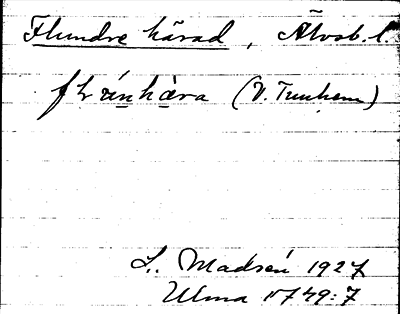 Flundre härad, Älvsb. l.
(V. Tunhem)
L. Madsén 1927
Ulma 1749:7